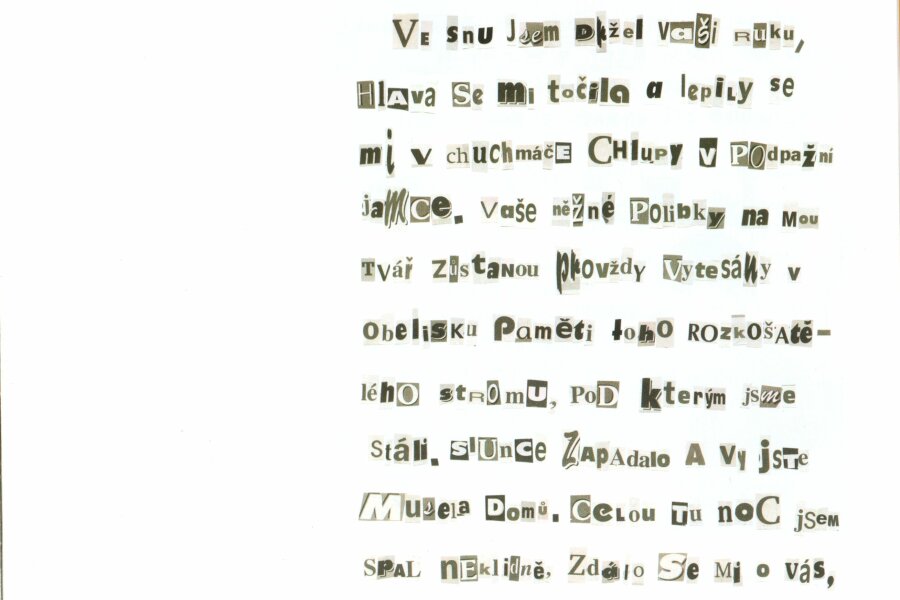 Ve snu jsem držel vaši ruku,
Hlava se mi točila a lepily se
mi v chuchmáče Chlupy v podpažní
jamce. Vaše něžné polibky na mou
tvář zůstanou provždy vytesány v
obelisku paměti toho rozkošatě-
lého stromu, pod kterým jsme
stáli. slunce Zapadalo A vy jste
Musela Domů. Celou tu noc jsem
spal neklidně, Zdálo se mi o vás,